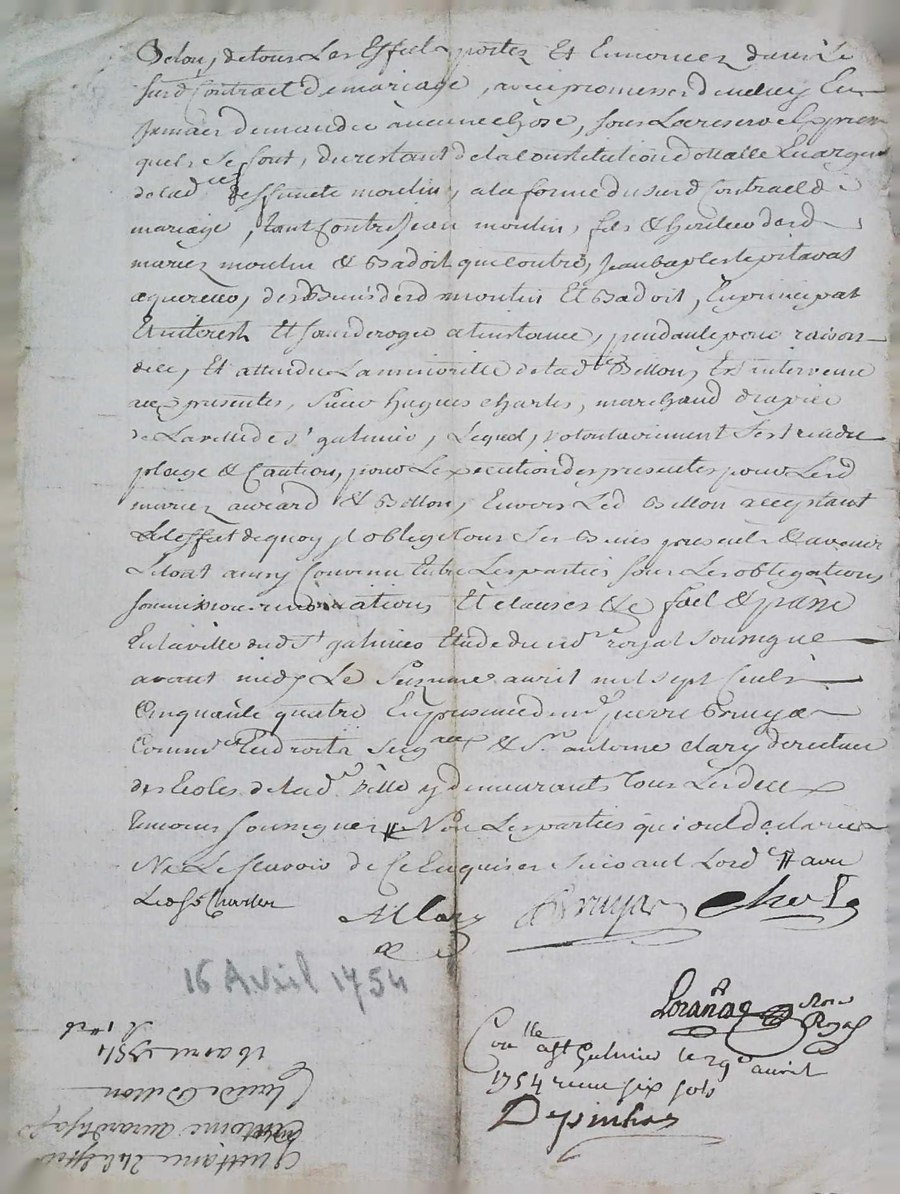 Bellon, de tous Les Effects portez Et Ennoncez dans Le
surd Contract de mariage, avec promesse den luy En
Jamais demander aucune chose, sous La reserve Expresse
quels se font, du restant de la Constitution dottalle En argent
de lad deffuncte moulin, a la forme du surd Contract de
mariage, tant Contre Jean moulin, fils & heritier desd
mariez moulin & Badoit que Contre, Jean baptiste pitaval
acquereur, des Biens desd moulin Et Badoit, En principal
Et interest Et sans deroger a linstance, pendante pour raison
dice, Et attendu La minoritté de lad te Bellon, Est intervenu
aux presentes, sieur hugues charles, marchand drapier
de La ville de st galmier, Lequel, volontairement s'est rendu
plaige & Caution, pour Lexecution des presentes pour Lesd
mariez aurard & Bellon, Envers Led Bellon acceptant
a Leffet de quoy, il oblige tous ses Biens presents & avenir
Le tout ainsy Convenu Entre Les parties sous Les obligations,
soumissions renonciations, Et clauses &c fait & passé
En la ville dud st galmier Etude du nore royal soussigné
avant midy Le seizieme avril mil sept Cents
Cinquante quatre En presence de mre pierre Bruyas
Commre En droits seigaux & sr antoine clary directeur
des Ecoles de lad ville y demeurants Tous Les deux
temoins soussignez # Non Les parties qui ont declaré
Ne Le scavoir de Ce Enquises suivant Lord ce # avec
Led sr Charles
A Clary Bruyas Charles
16 Avril 1754
Lorañge Nore Royal
Conllé a st Galmier le 29e avril
1754 reçu six sols
Depinhac
quittance
Antoine aurard
Bellon
16 avril 1754